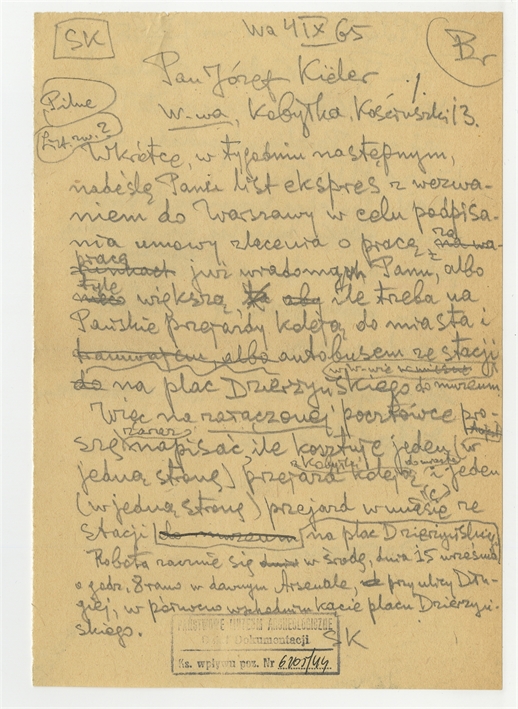 SK
Wa 4 IX 65
Br
Pan Józef Kieler
Pilne
List zw. 2
W-wa, Kobyłka, Kościuszki 3.
Wkrótce, w tygodniu następnym,
nadeślę Panu list ekspres z wezwa-
niem do Warszawy w celu podpisa-
nia umowy zlecenia o pracę za
pracę już wiadomych Panu, albo
tyle większą ile trzeba na
Pańskie przejazdy koleją do miasta i
tramwajem, albo autobusem ze stacji
na plac Dzierżyńskiego do muzeum
Więc na załączonej pocztówce pro-
szę zaraz napisać, ile kosztuje jeden (w
jedną stronę) przejazd koleją z Kobyłki do miasta i jeden
(w jedną stronę) przejazd w mieście ze
stacji do muzeum na plac Dzierżyńskiego
Robota zacznie się w środę, dnia 15 września
o godz. 8 rano w dawnym Arsenale, przy ulicy Dłu-
giej, w północno wschodnim kącie placu Dzierżyń-
skiego.
SK
PAŃSTWOWE MUZEUM ARCHEOLOGICZNE
Dział Dokumentacji
Ks. wpływu poz. Nr 6201/44